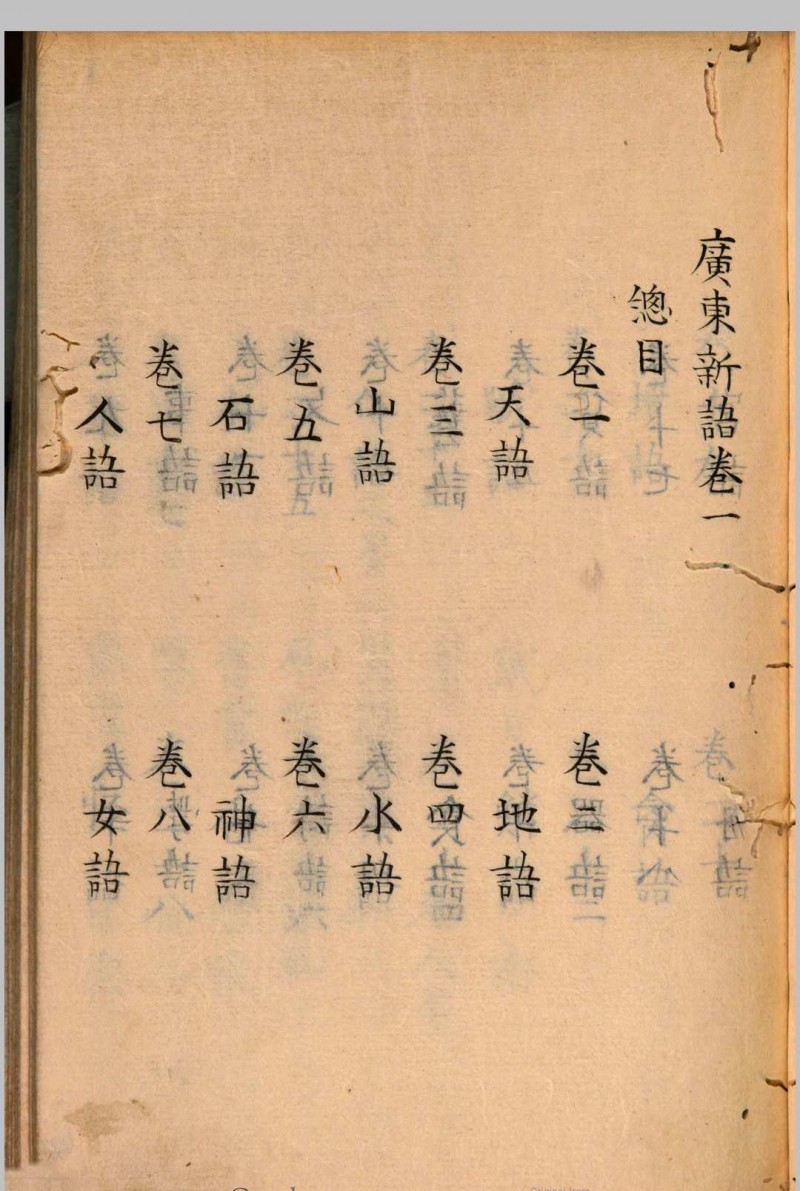 廣東新語卷一
總目
卷一
卷二
天語
地語
卷三
卷四
山語
水語
卷五
卷六
石語
神語
卷七
卷八
人語
女語